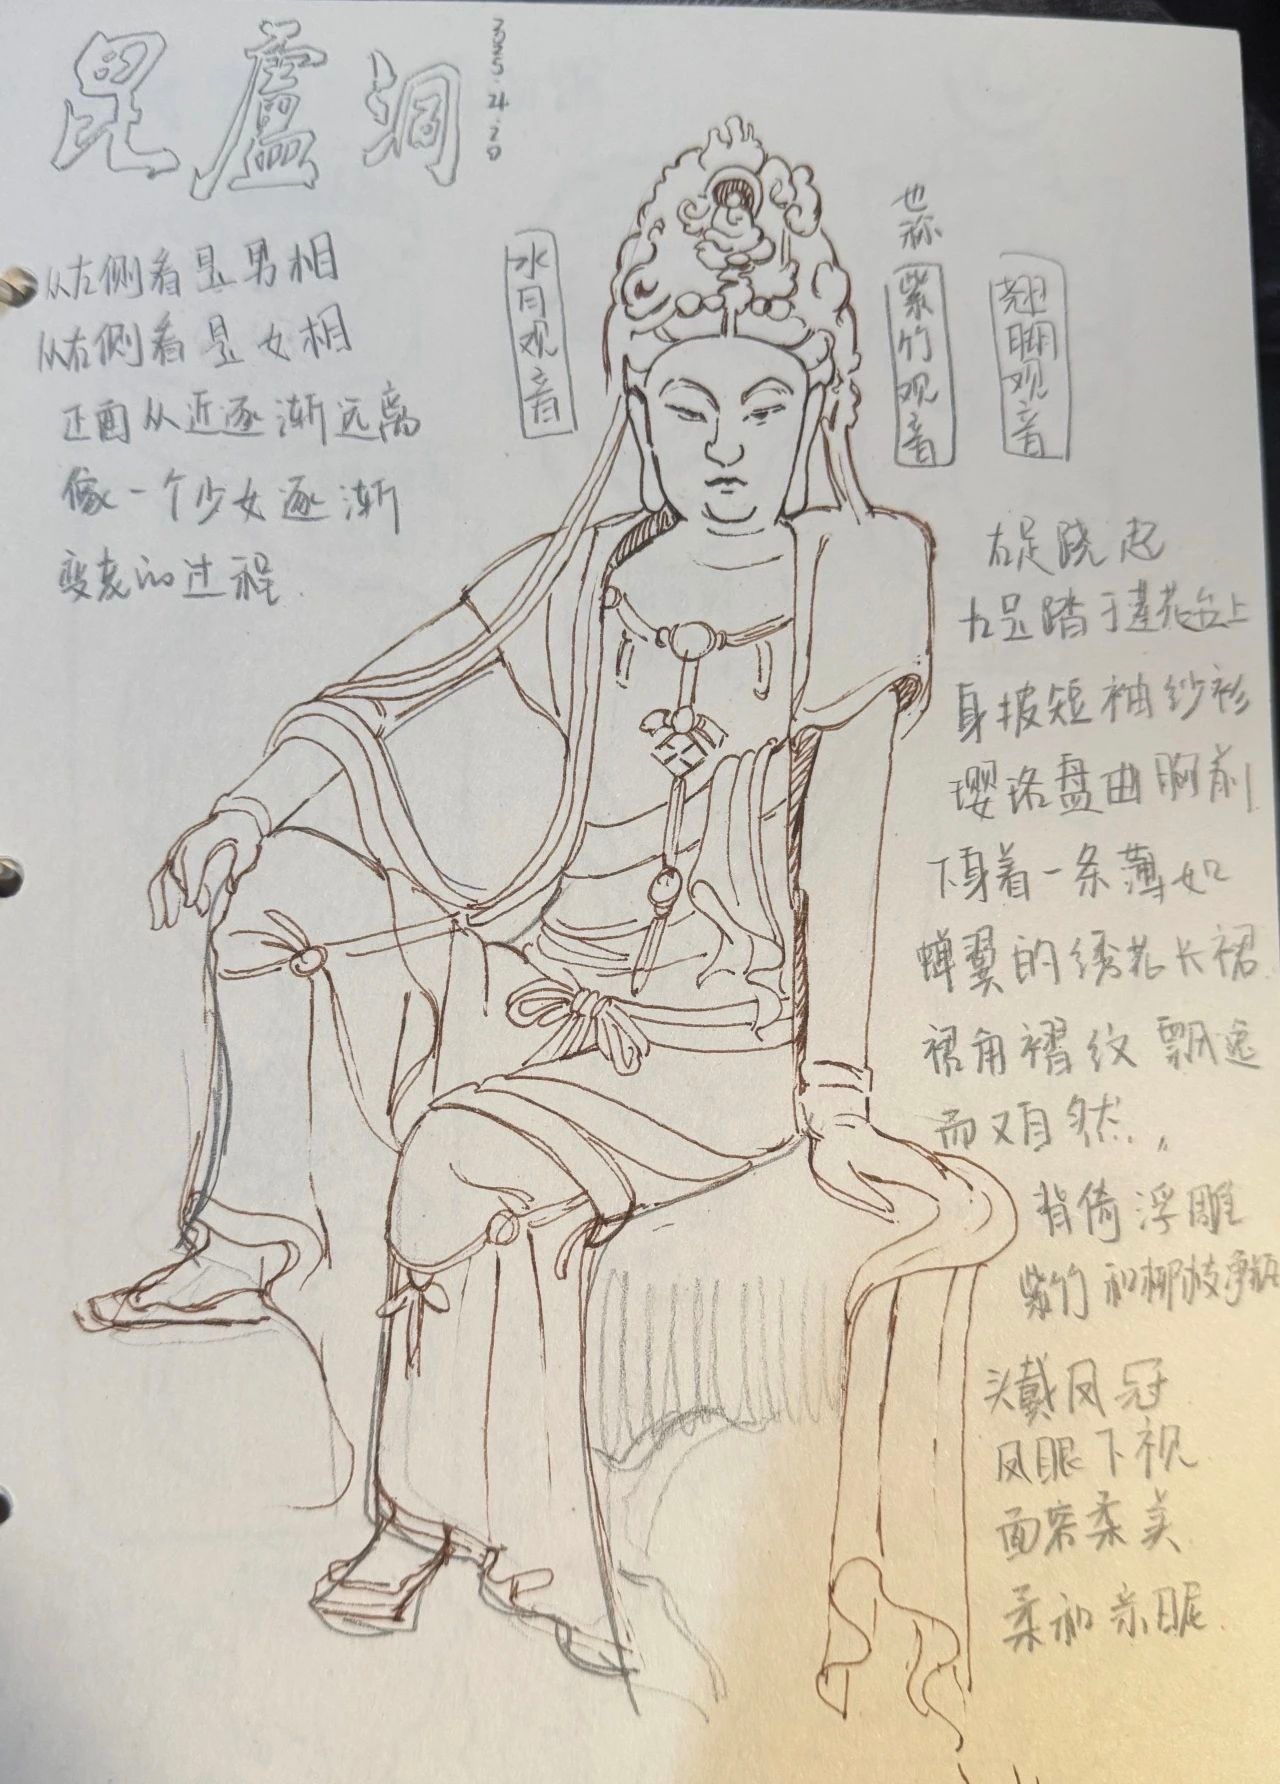 昆盧洞
从左侧看是男相
从右侧看是女相
正面从近逐渐远离
像一个少女逐渐
变老的过程
水月观音
也称
紫竹观音
翘脚观音
右足跷起
左足踏于莲花台上
身披短袖纱衫
璎珞盘曲胸前
下身着一条薄如
蝉翼的绣花长裙
裙角褶纹飘逸
而又自然。
背倚浮雕
紫竹和柳枝净瓶
头戴凤冠
凤眼下视
面容柔美
柔和亲昵